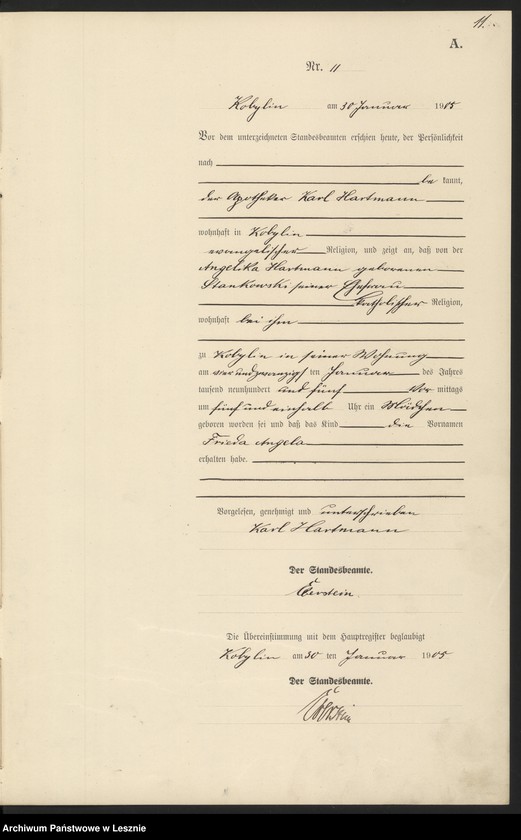 11.
A.
Nr. 11
Kobylin am 30 Januar 1905
Vor dem unterzeichneten Standesbeamten erschien heute, der Persönlichkeit
nach
be kannt,
der Apotheker Karl Hartmann
wohnhaft in Kobylin
evangelischer Religion, und zeigt an, daß von der
Angelika Hartmann geborenen
Stankowski seiner Ehefrau
katholischer Religion,
wohnhaft bei ihm
zu Kobylin in seiner Wohnung
am vier und zwanzigsten Januar des Jahres
tausend neunhundert und fünf Vor mittags
um fünf und einhalb Uhr ein Mädchen
geboren worden sei und daß das Kind die Vornamen
Frieda Angela
erhalten habe.
Vorgelesen, genehmigt und unterschrieben
Karl Hartmann
Der Standesbeamte.
Die Übereinstimmung mit dem Hauptregister beglaubigt
Kobylin am 30 ten Januar 1905
Der Standesbeamte.
Archiwum Państwowe w Lesznie